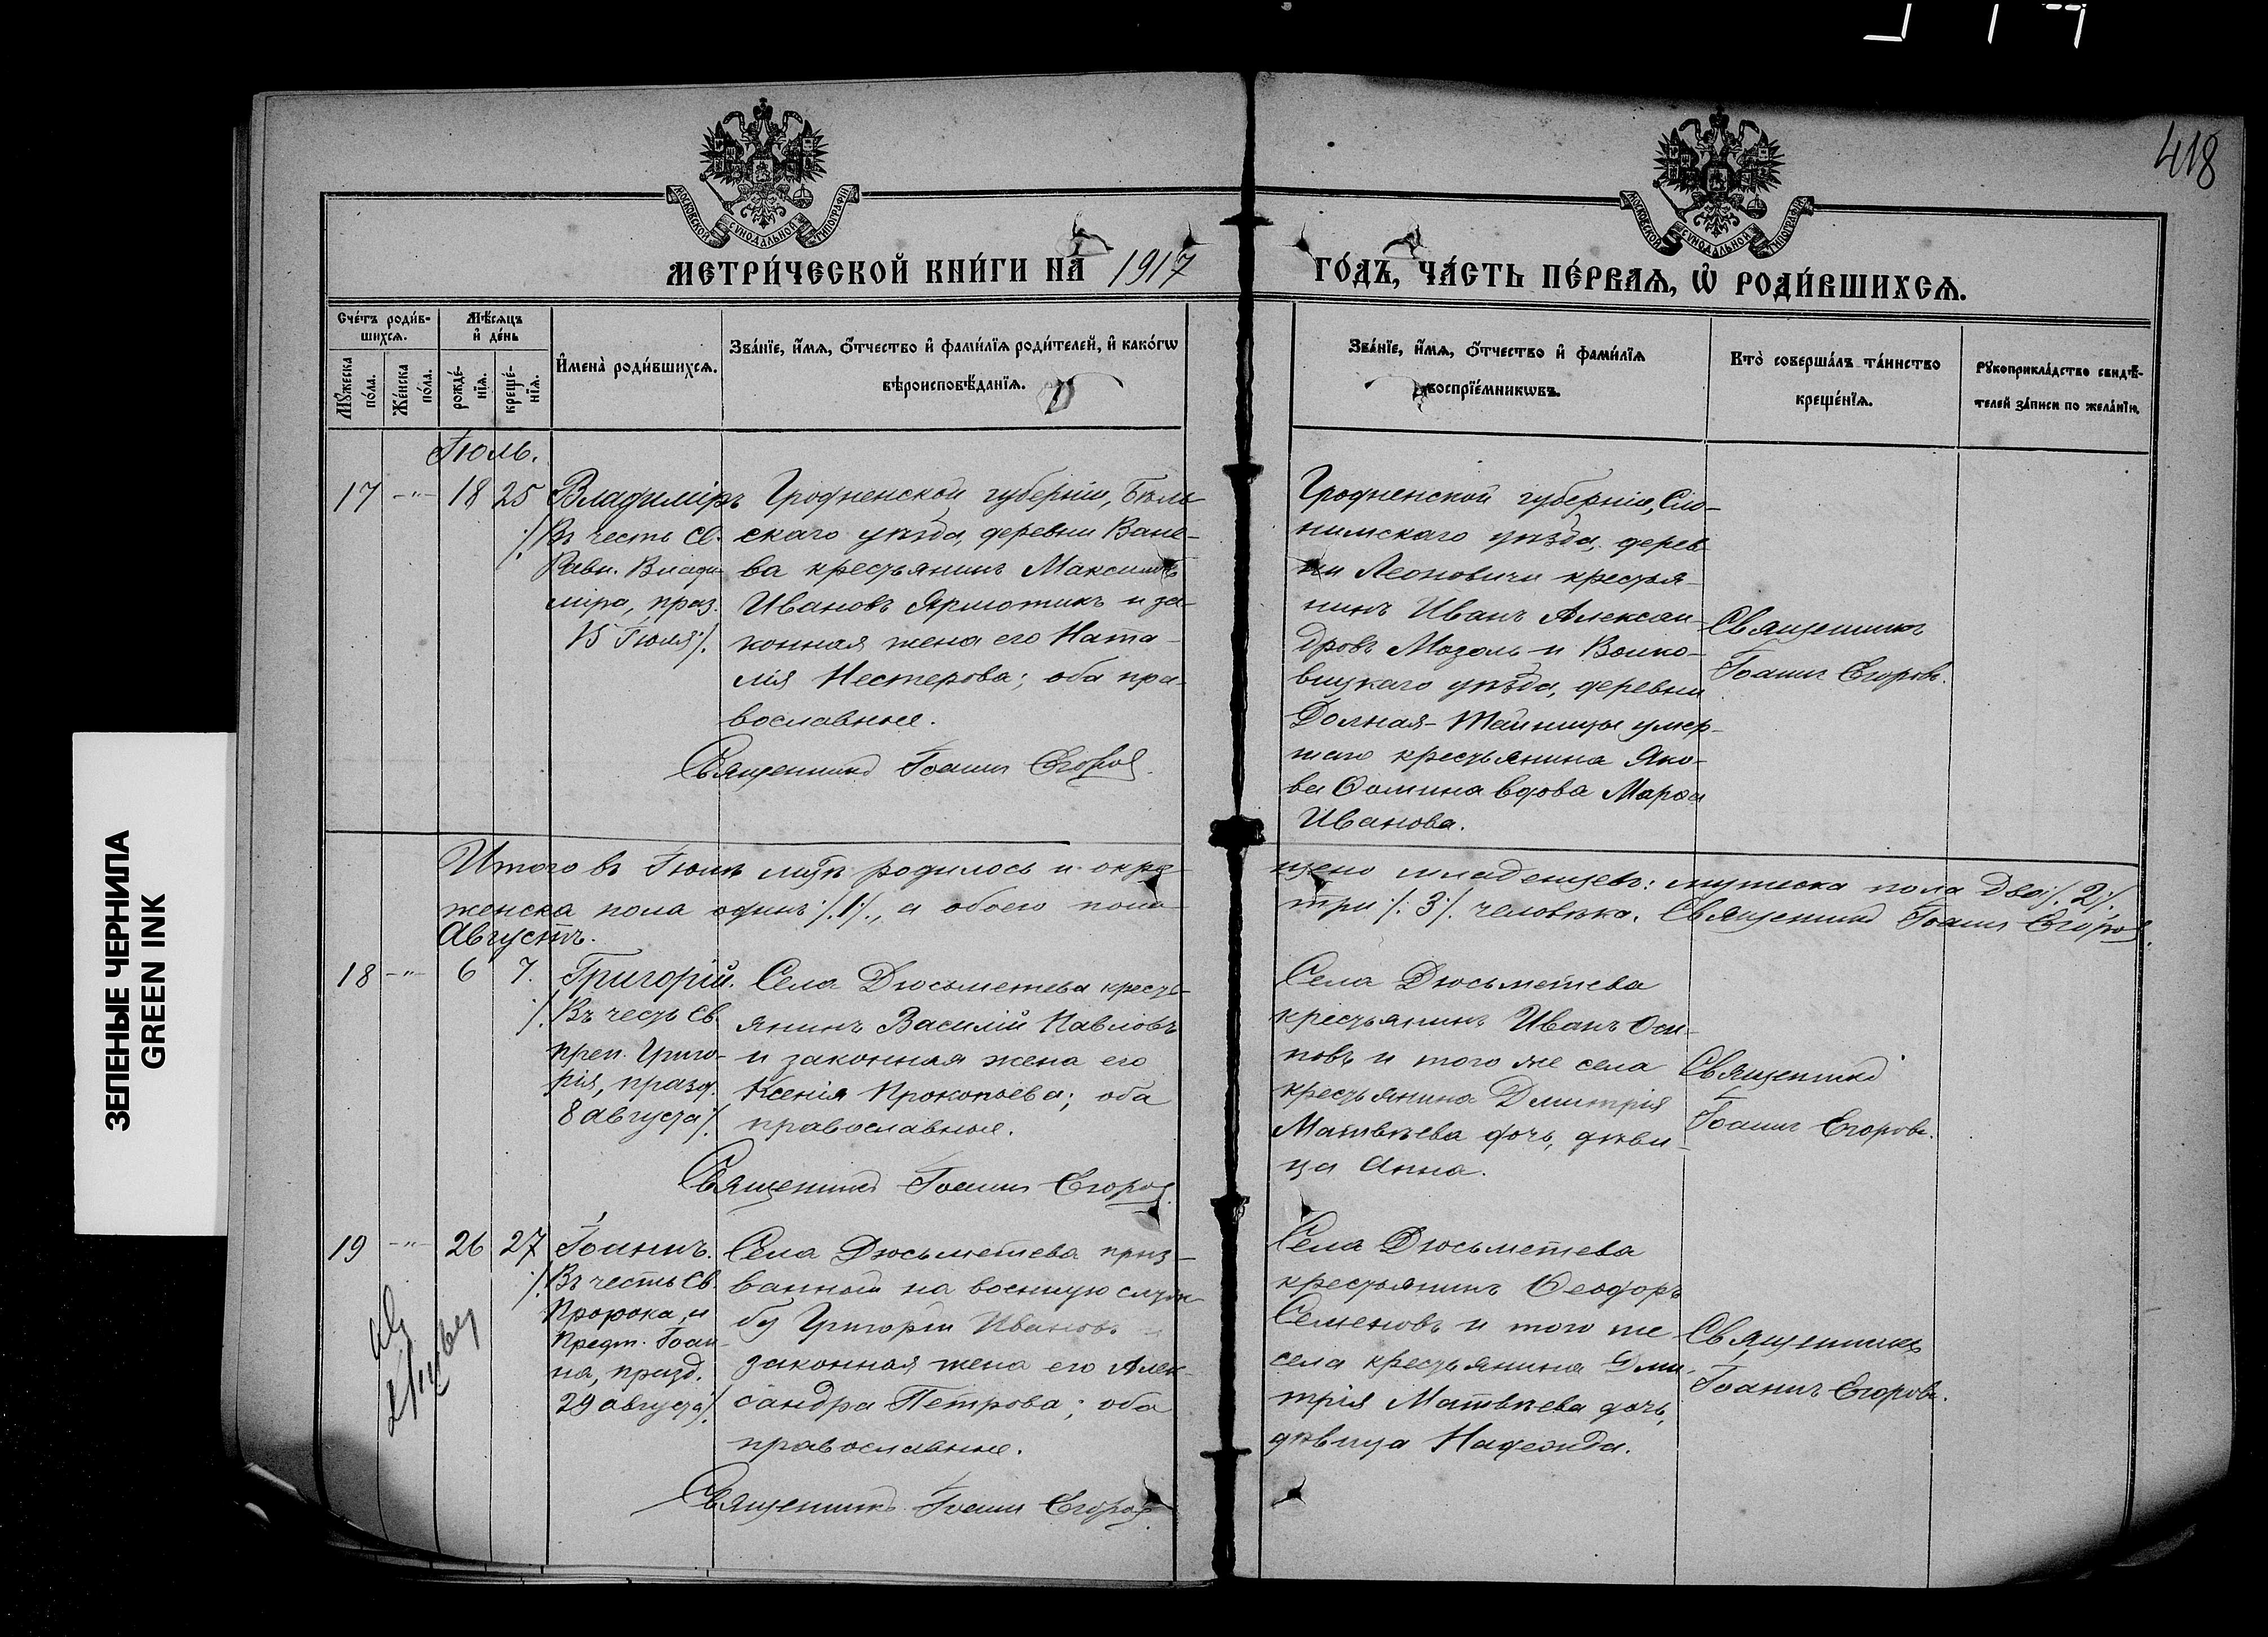 418
МОСКОВСКОЙ СУНОДАЛЬНОЙ ТИПОГРАФІИ
МОСКОВСКОЙ СУНОДАЛЬНОЙ ТИПОГРАФІИ
МЕТРИ́ЧЕСКОЙ КНИ́ГИ НА 1917 ГО́ДЪ, ЧА́СТЬ ПЕ́РВАѦ, Ѡ РОДИ́ВШИХСѦ.
Сче́тъ роди́в-
шихсѧ.
Мѣ́сѧцъ
и де́нь
Мꙋ́жеска
по́ла.
Же́нска
по́ла.
рожде́-
нїѧ.
креще́-
нїѧ.
Имена̀ роди́вшихсѧ.
Зва́нїе, и́мѧ, ѻ́тчество и фами́лїѧ роди́телей, и како́гѡ
вѣроисповѣ́данїѧ.
Зва́нїе, и́мѧ, ѻ́тчество и фами́лїѧ
воспрїе́мникѡвъ.
Кто̀ соверша́лъ та́инство
креще́нїѧ.
Рꙋкоприкла́дство свидѣ́-
телей за́писи по жела́нїю.
Іюль.
17 -"- 18 25
Владиміръ
/. Въ честь Св.
Равн. Влади-
міра, праз.
15 Іюля /.
Гродненской губерніи, Бѣль-
скаго уѣзда, деревни Ване-
ва крестьянинъ Максимъ
Ивановъ Ярмотикъ и за-
конная жена его Ната-
лія Нестерова; оба пра-
вославные.
Священникъ Іоаннъ Егоровъ.
Гродненской губерніи, Сло-
нимскаго уѣзда, дерев-
ни Леоновичи крестья-
нинъ Иванъ Алексан-
дровъ Мозоль и Волко-
выцкаго уѣзда, деревни
Долная- умер-
шаго крестьянина Яко-
ва Ѳомина вдова Марѳа
Иванова.
Священникъ
Іоаннъ Егоровъ.
Итого въ Іюлѣ мцѣ родилось и окре-
щено младенцевъ: мужеска пола два /. 2 /.,
женска пола одинъ /. 1 /., а обоего пола
три /. 3 /. человѣка. Священникъ Іоаннъ Егоровъ.
Августъ.
18 -"- 6 7.
Григорій.
/. Въ честь Св.
преп. Григо-
рія, празд.
8 августа /.
Села Дюсьметева кресть-
янинъ Василій Павловъ
и законная жена его
Ксенія Прокопьева; оба
православные.
Священникъ Іоаннъ Егоровъ.
Села Дюсьметева
крестьянинъ Иванъ Оси-
повъ и того же села
крестьянина Дмитрія
Матвѣева дочь, дѣви-
ца Анна.
Священникъ
Іоаннъ Егоровъ.
19 -"- 26 27
Іоаннъ.
/. Въ честь Св.
Пророка и
Предт. Іоан-
на, празд.
29 августа /.
Села Дюсьметева приз-
ванный на военную служ-
бу Григорій Ивановъ и
законная жена его Алек-
сандра Петрова; оба
православные.
Священникъ Іоаннъ Егоровъ.
Села Дюсьметева
крестьянинъ Ѳеодоръ
Семеновъ и того же
села крестьянина Дми-
трія Матвѣева дочь,
дѣвица Надежда.
Священникъ
Іоаннъ Егоровъ.
ЗЕЛЕНЫЕ ЧЕРНИЛА
GREEN INK